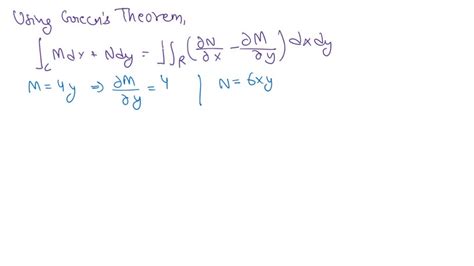 Using Green's Theorem,
∫_C Mdx + Ndy = ∬_R (∂N/∂x - ∂M/∂y) dxdy
M = 4y ⇒ ∂M/∂y = 4 | N = 6xy